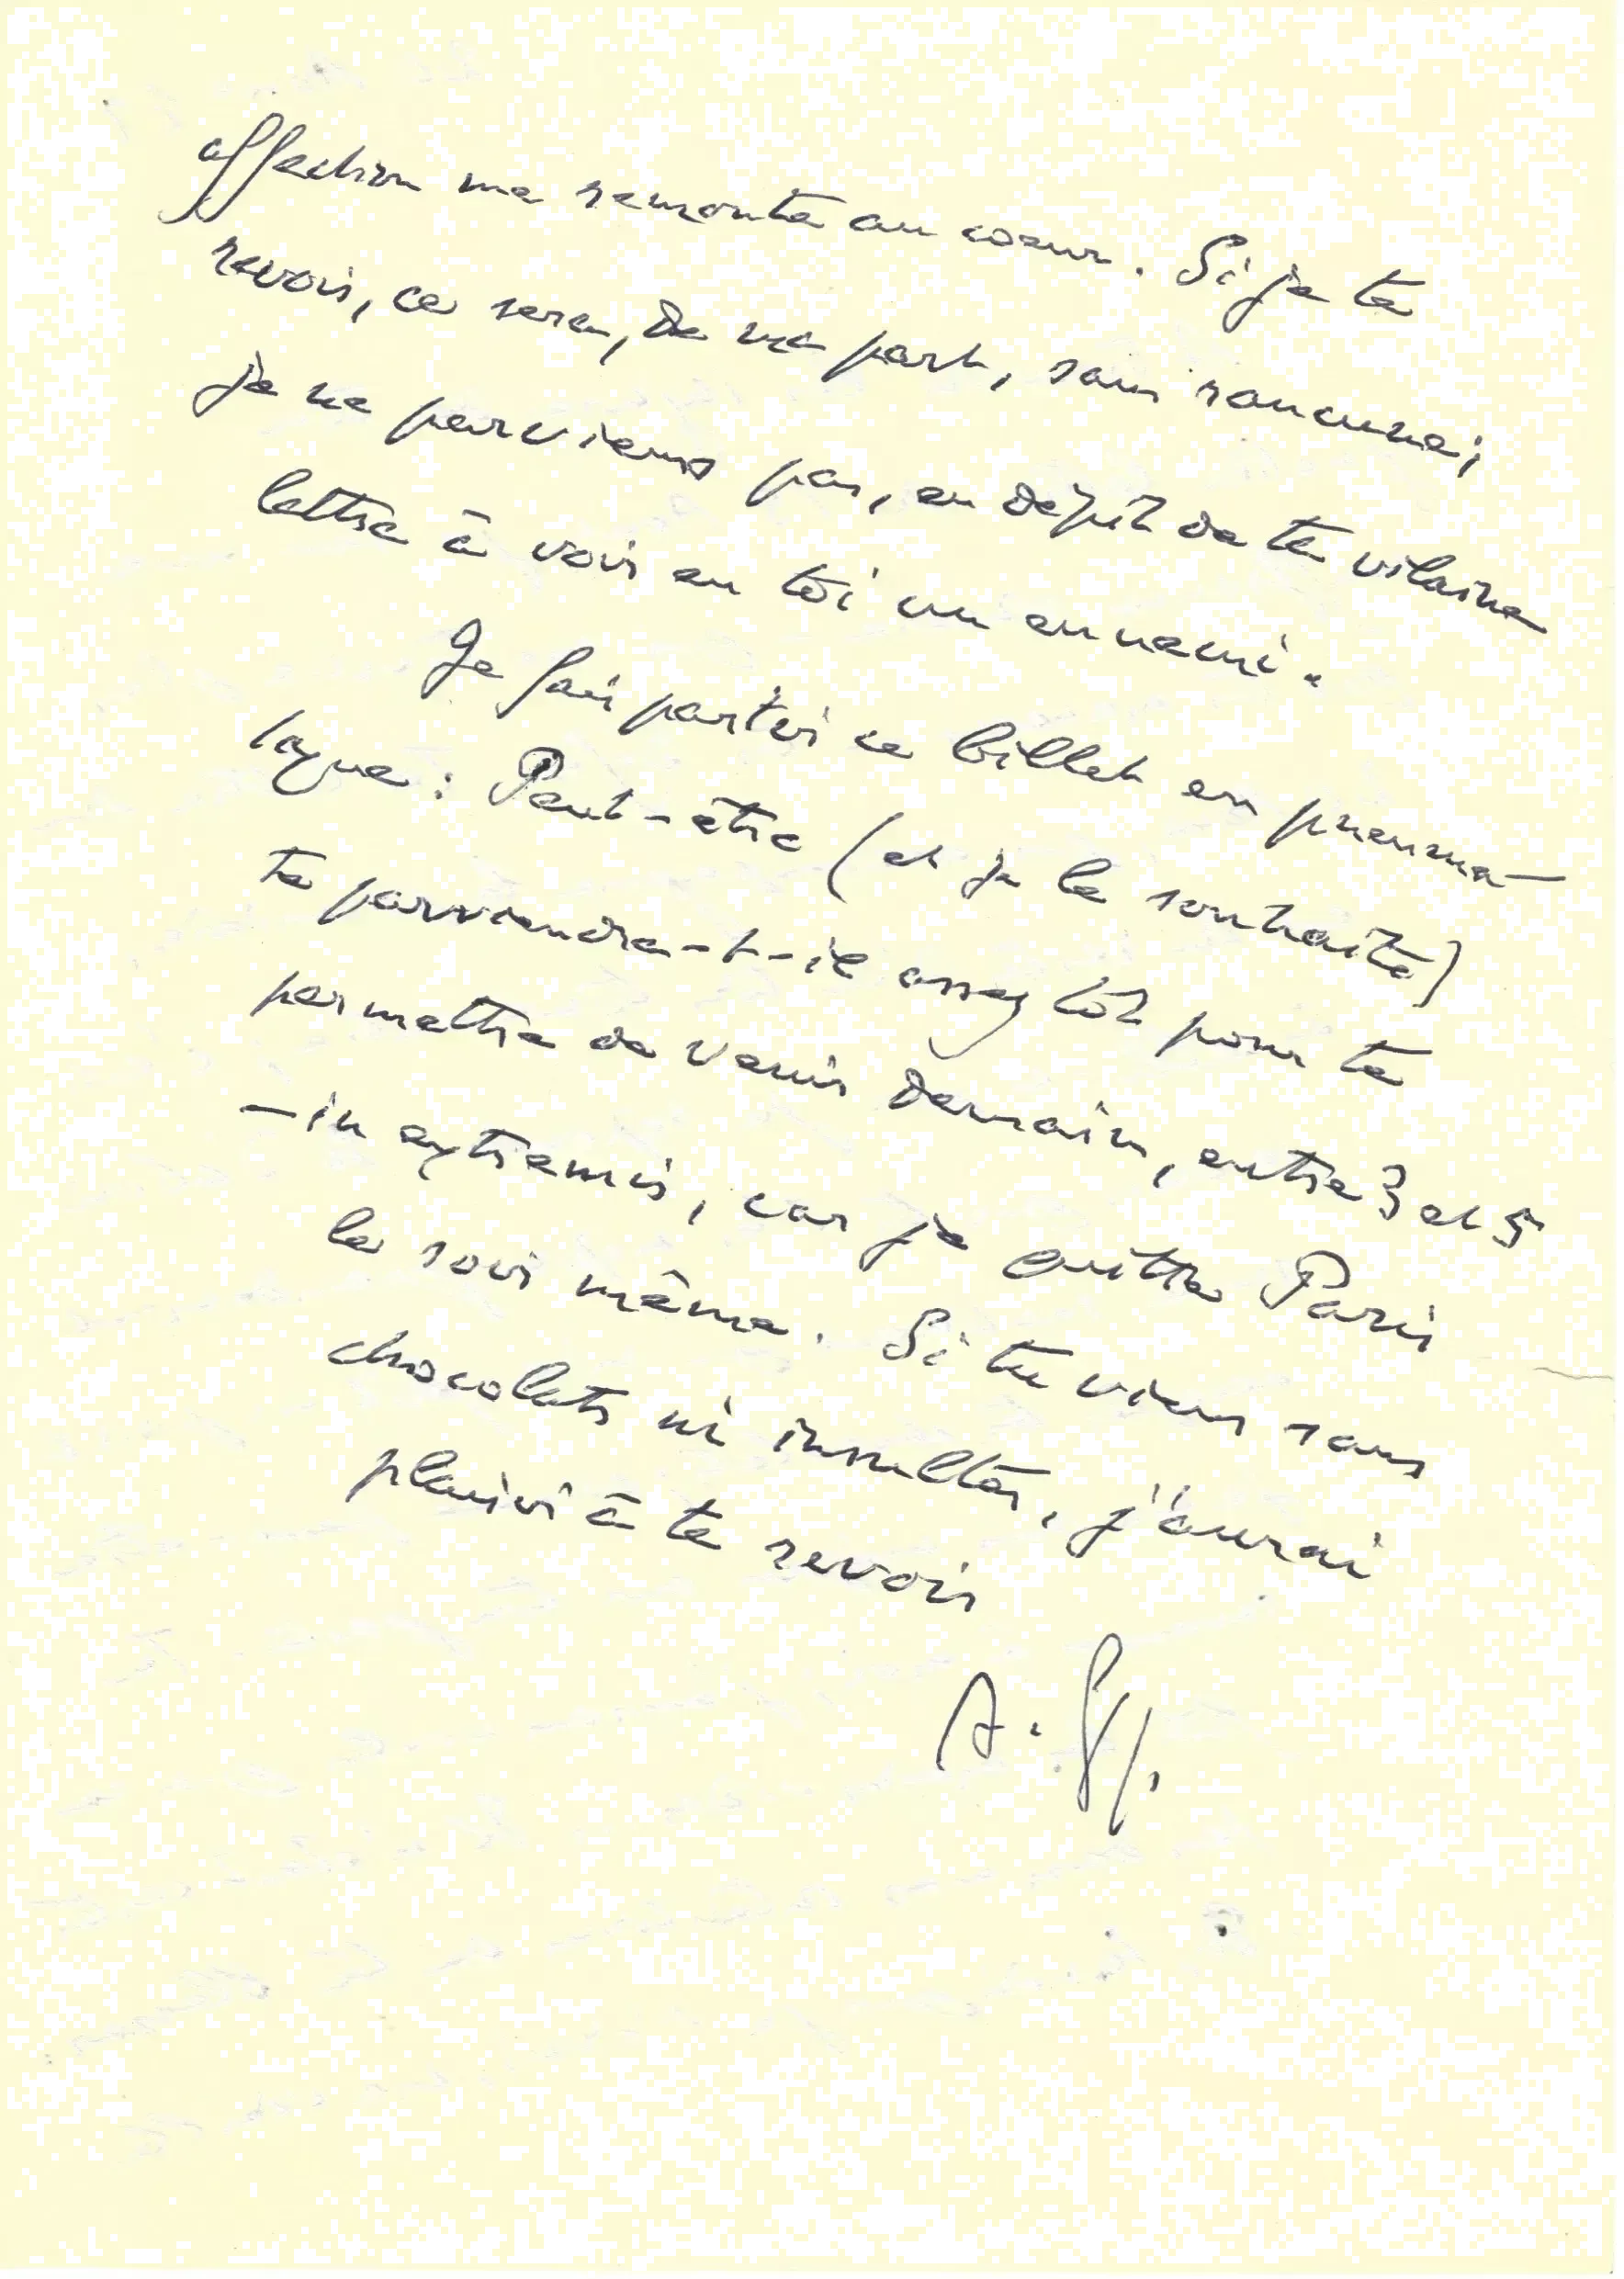 affection me remonte au cœur. Si je te
revois, ce sera, de ma part, sans rancune;
je ne parviens pas, en dépit de ta vilaine
lettre à voir en toi un ennemi.
Je fais partir ce billet en pneuma-
tique : Peut-être (et je le souhaite)
te parviendra-t-il assez tôt pour te
permettre de venir demain, entre 3 et 5
– in extremis, car je quitte Paris
le soir même. Si tu viens sans
chocolats ni insultes, j'aurai
plaisir à te revoir